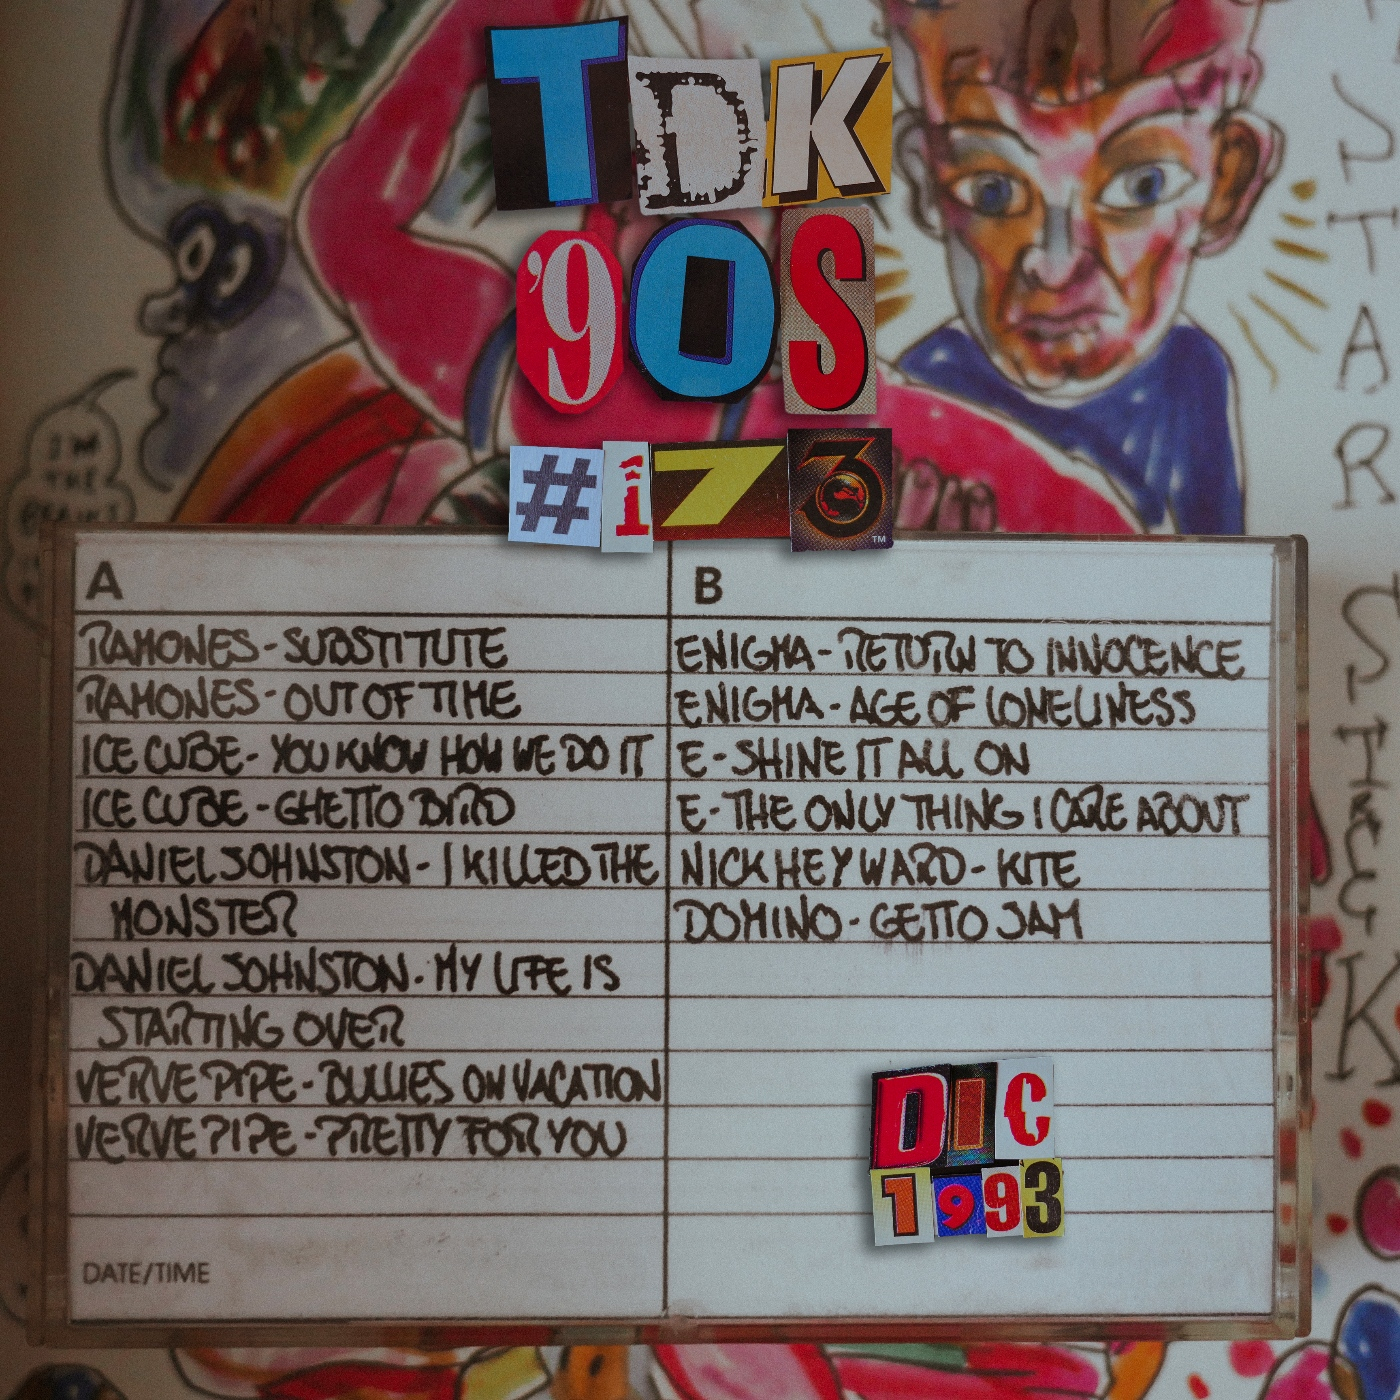 TDK
'90S
#173
TM
I'M
THE
STAR
STREEK
A
RAMONES - SUBSTITUTE
RAMONES - OUT OF TIME
ICE CUBE - YOU KNOW HOW WE DO IT
ICE CUBE - GHETTO BIRD
DANIEL JOHNSTON - I KILLED THE
MONSTER
DANIEL JOHNSTON - MY LIFE IS
STARTING OVER
VERVE PIPE - BULLIES ON VACATION
VERVE PIPE - PRETTY FOR YOU
DATE/TIME
B
ENIGMA - RETURN TO INNOCENCE
ENIGMA - AGE OF LONELINESS
E - SHINE IT ALL ON
E - THE ONLY THING I CARE ABOUT
NICK HEYWARD - KITE
DOMINO - GETTO JAM
DIC
1993